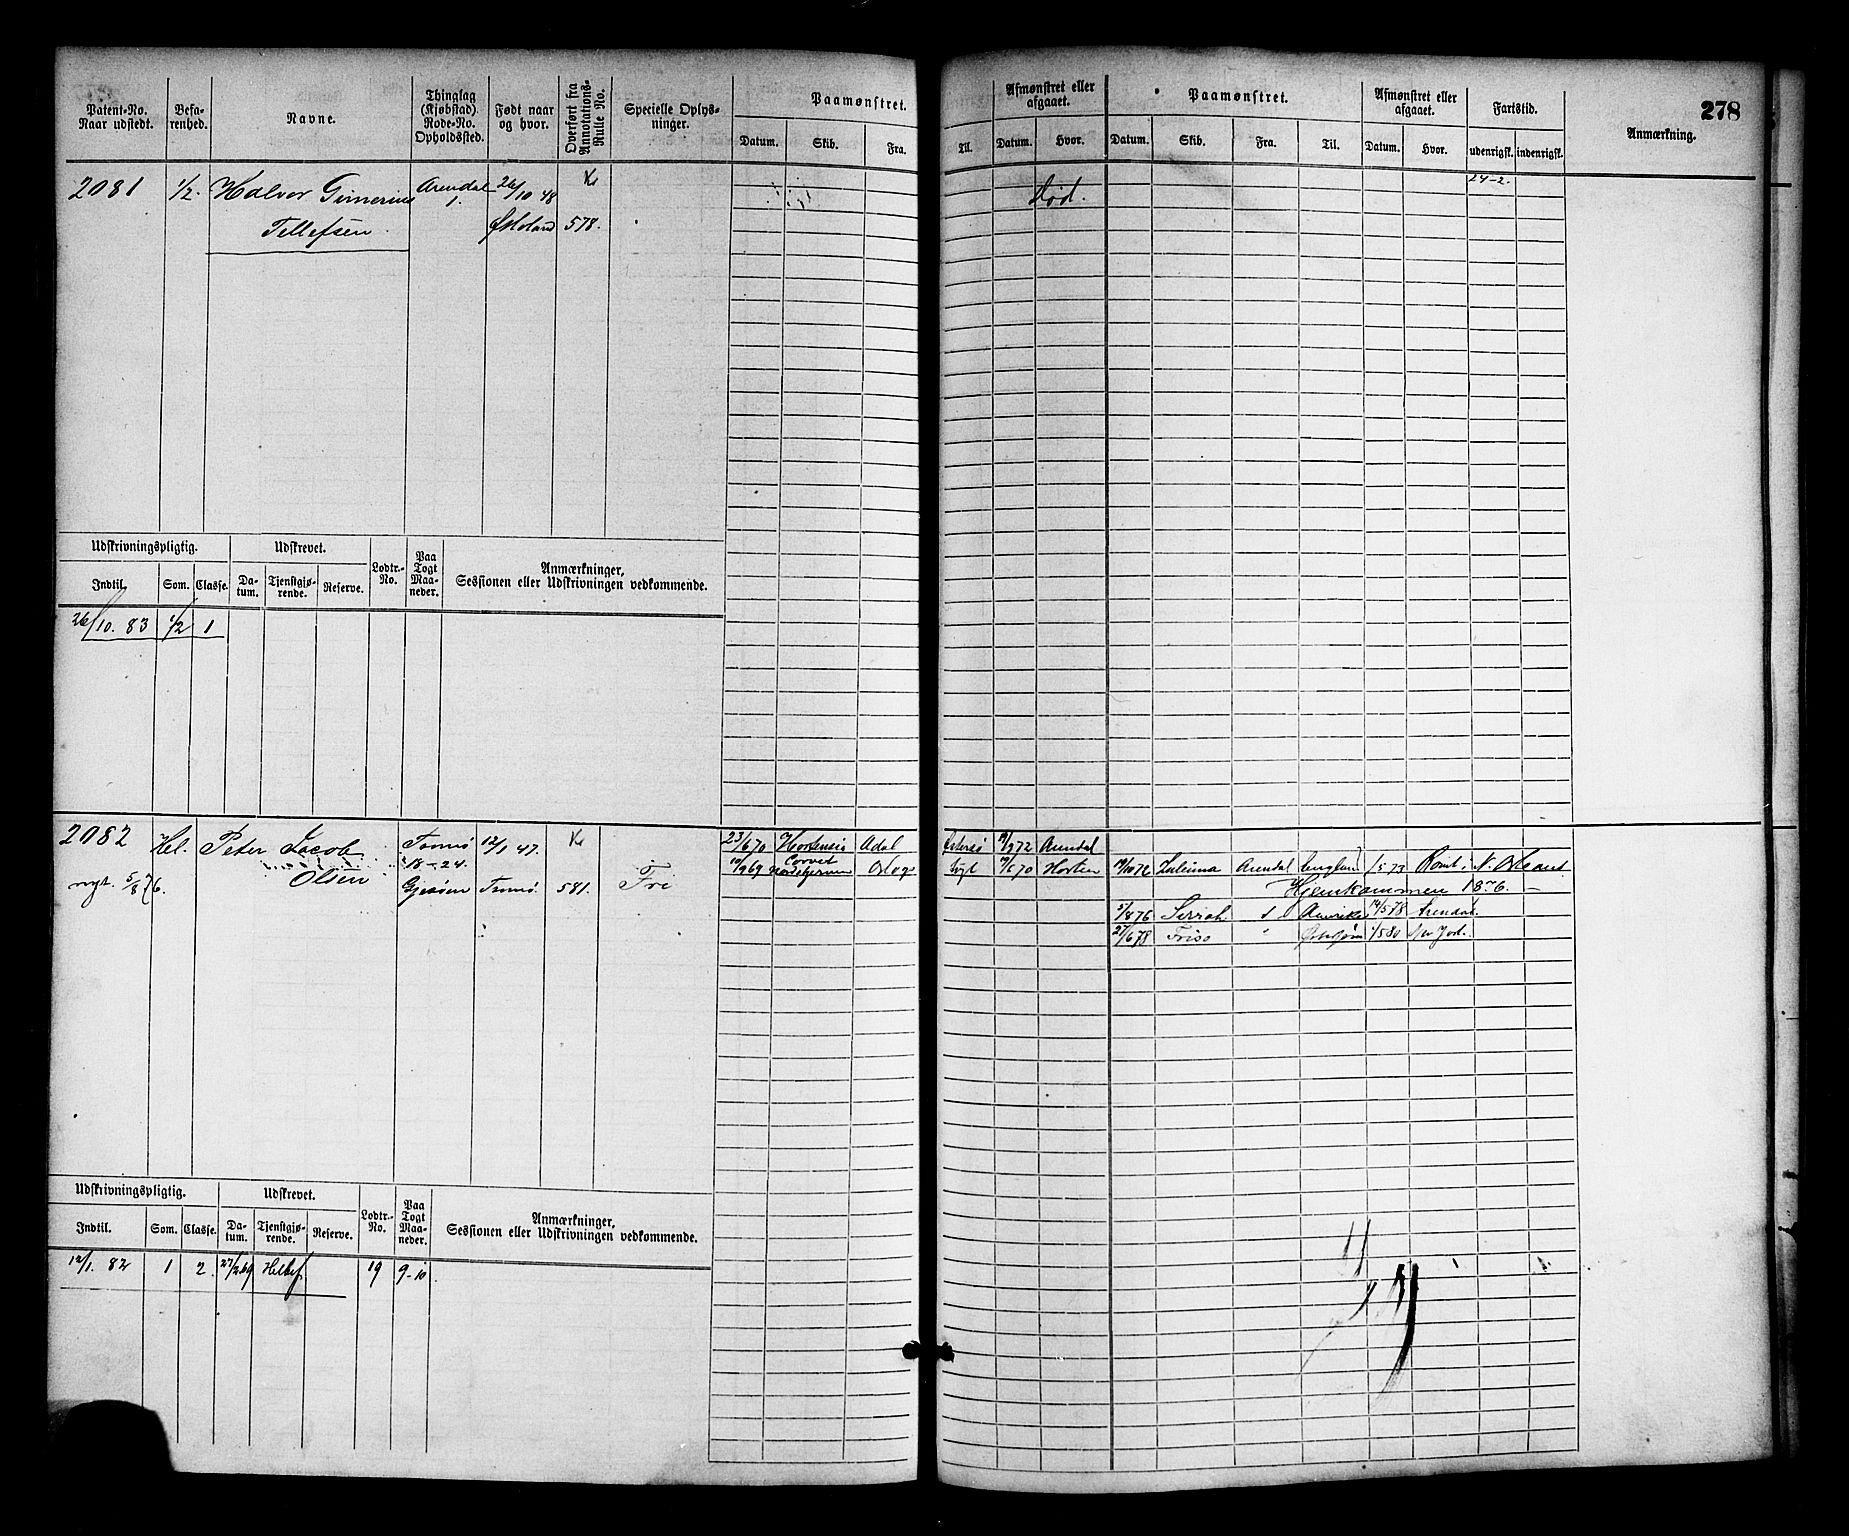 278
Patent-No. Naar udstedt.
Befarenhed.
Navne.
Thinglag (Kjøbstad) Rode-No. Opholdssted.
Født naar og hvor.
Overført fra Annotations-Rulle No.
Specielle Oplysninger.
Paamønstret.
Datum. Skib. Fra. Til.
Afmønstret eller afgaaet.
Datum. Hvor.
Paamønstret.
Datum. Skib. Fra. Til.
Afmønstret eller afgaaet.
Datum. Hvor.
Fartstid.
udenrigsk. indenrigsk.
Anmærkning.
2081 1/2. Halvor Arendal 26/10 48 Død. 24-2.
Tellefsen 1. 578.
Udskrivningspligtig. Udskrevet. Lodtr.-No. Paa Togt Maaneder. Anmærkninger, Sessionen eller Udskrivningen vedkommende.
Indtil. Som. Classe. Datum. Tjenstgjørende. Reserve.
26/10. 83 1/2 1
2082 Hel. Peter Jacob Tromø 12/1 47. 23/6 70 Hortensia Arendal
Olsen 18-24. 10/9 69 Corvet Togt Horten Arendal
nyt. 5/8 76. Tromø 581. Fri Hjemkommen 1876.
5/8 76 Amerika 14/5 78 Arendal.
27/6 78
Udskrivningspligtig. Udskrevet. Lodtr.-No. Paa Togt Maaneder. Anmærkninger, Sessionen eller Udskrivningen vedkommende.
Indtil. Som. Classe. Datum. Tjenstgjørende. Reserve.
12/1. 82 1 2. 27/2 69 19 9-10.